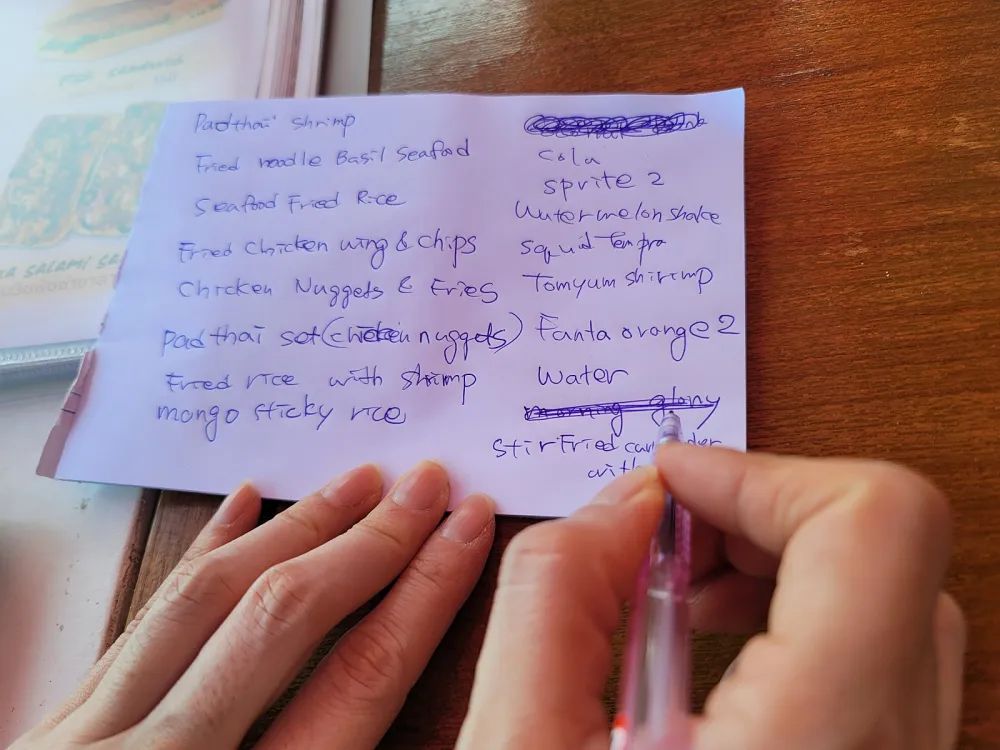 Padthai shrimp
Fried noodle Basil Seafood
Seafood Fried Rice
Fried Chicken wing & chips
Chicken Nuggets & Fries
Pad thai set (Chicken nuggets)
Fried rice with shrimp
mongo sticky rice
Cola
Sprite 2
Watermelon shake
Squid Tempra
Tomyum shirimp
Fanta orange 2
Water
morning glony
Stir Fried
with